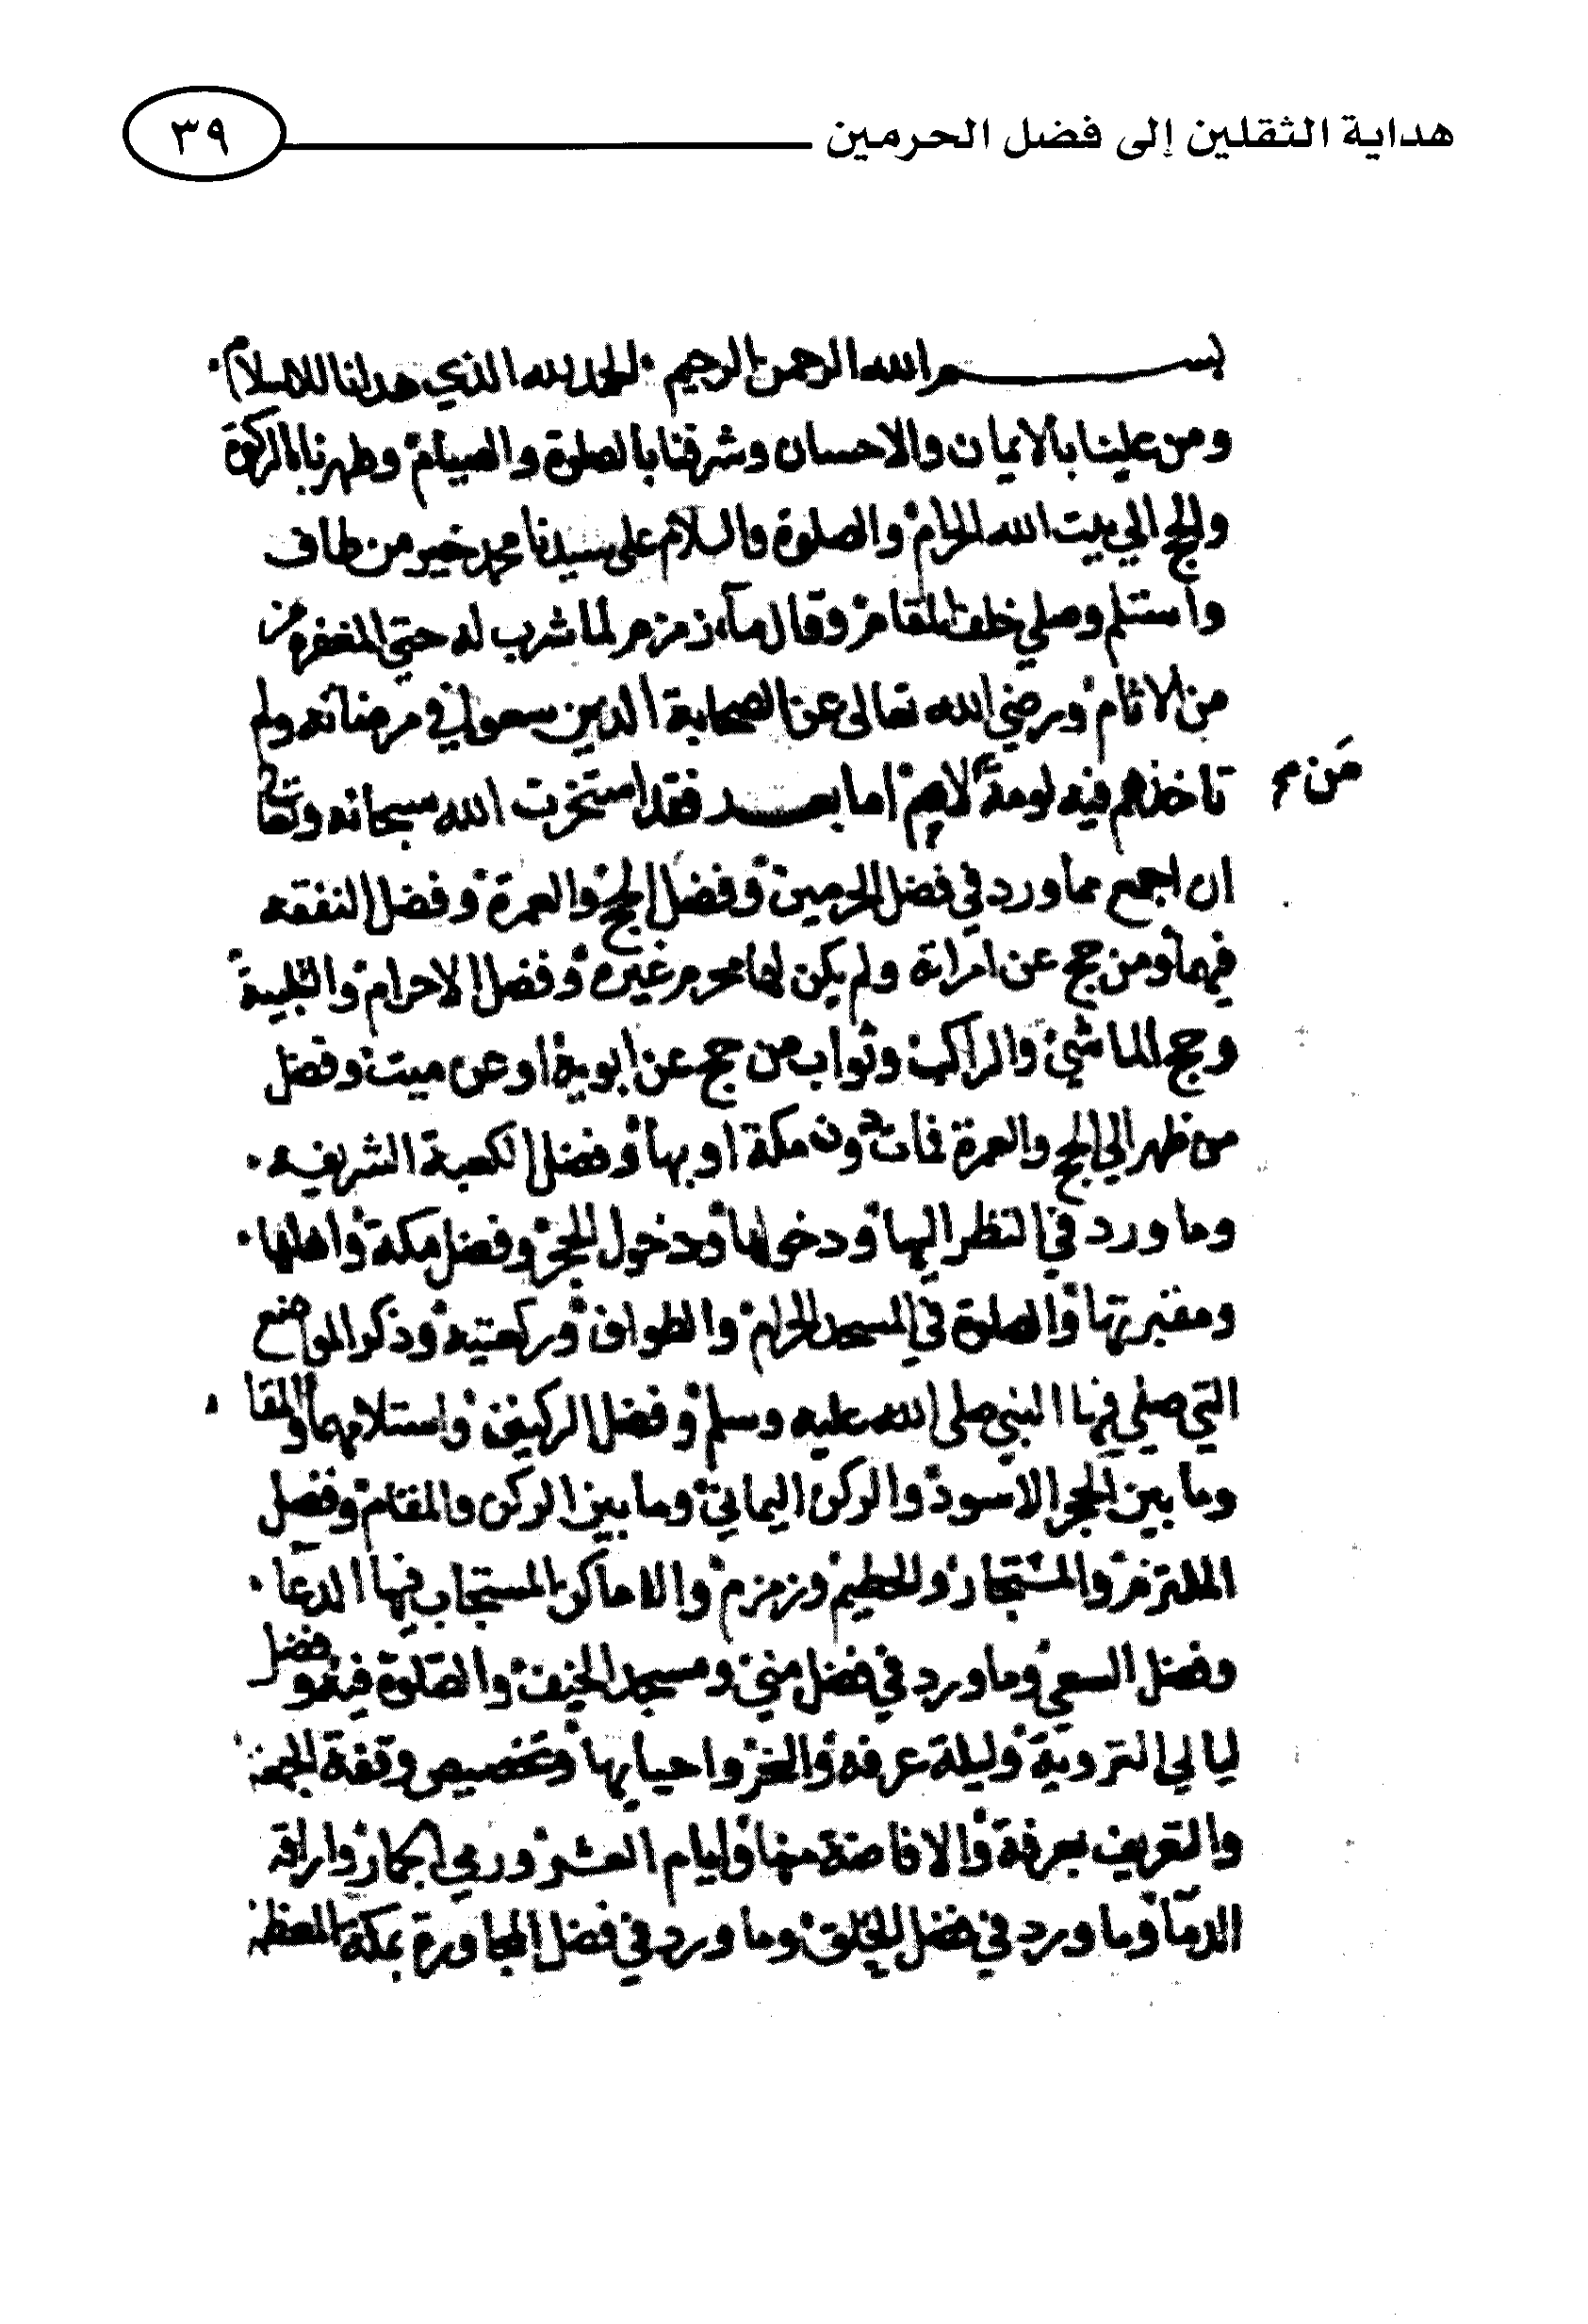 هداية الثقلين إلى فضل الحرمين ٣٩
بسم الله الرحمن الرحيم . الحمد لله الذي هدانا للاسلام .
ومن علينا بالايمان والاحسان وشرفنا بالصلوة والصيام وطهرنا بالزكوة
والحج الي بيت الله الحرام والصلوة والسلام على سيدنا محمد خير من طاف
واستلم وصلي خلف المقام وقال مآء زمزم لما شرب له حتي المغفرة من
من الاثام ورضي الله تعالى عن الصحابة الذين سعوا في مرضاته ولم
تاخذهم فيه لومة لايم اما بعد فقد استخرت الله سبحانه وتعا
من
ان اجمع مما ورد في فضل الحرمين وفضل الحج والعمرة وفضل النفقه
فيهما ومن حج عن امراة ولم يكن لها محرم غيره وفضل الاحرام والتلبية
وحج الماشي والراكب وثواب من حج عن ابويه او عن ميت وفضل
من ظهر الي الحج والعمرة فمات دون مكة او بها وفضل الكعبة الشريفه .
وما ورد في النظر اليها ودخولها ودخول الحجر وفضل مكة واهلها .
ومقبرتها والصلوة في المسجد الحرام والطواف وركعتيه وذكر المواضع
التي صلي فيها النبي صلى الله عليه وسلم وفضل الركنين واستلامهما والمقا
وما بين الحجر الاسود والركن اليماني وما بين الركن والمقام وفضل
الملتزم والمستجار والحطيم وزمزم والاماكن المستجاب فيها الدعا .
وفضل السعي وما ورد في فضل مني ومسجد الخيف والصلوة فيه وفضل
ليالي التروية وليلة عرفه والنحر واحيايها وتخصيص وقفة الجمعة
والتعريف بعرفة والافاضة منها وايام العشر ورمي الجمار واراقة
الدمآ وما ورد في فضل الحلق وما ورد في فضل المجاورة بمكة المعظمة